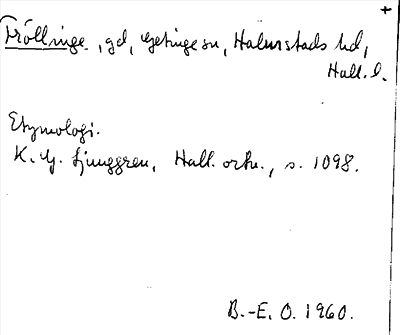 +
Fröllinge, gd, Getinge sn, Halmstads hd,
Hall. l.
Etymologi.
K. G. Ljunggren, Hall. ortn., s. 1098.
B.-E. O. 1960.